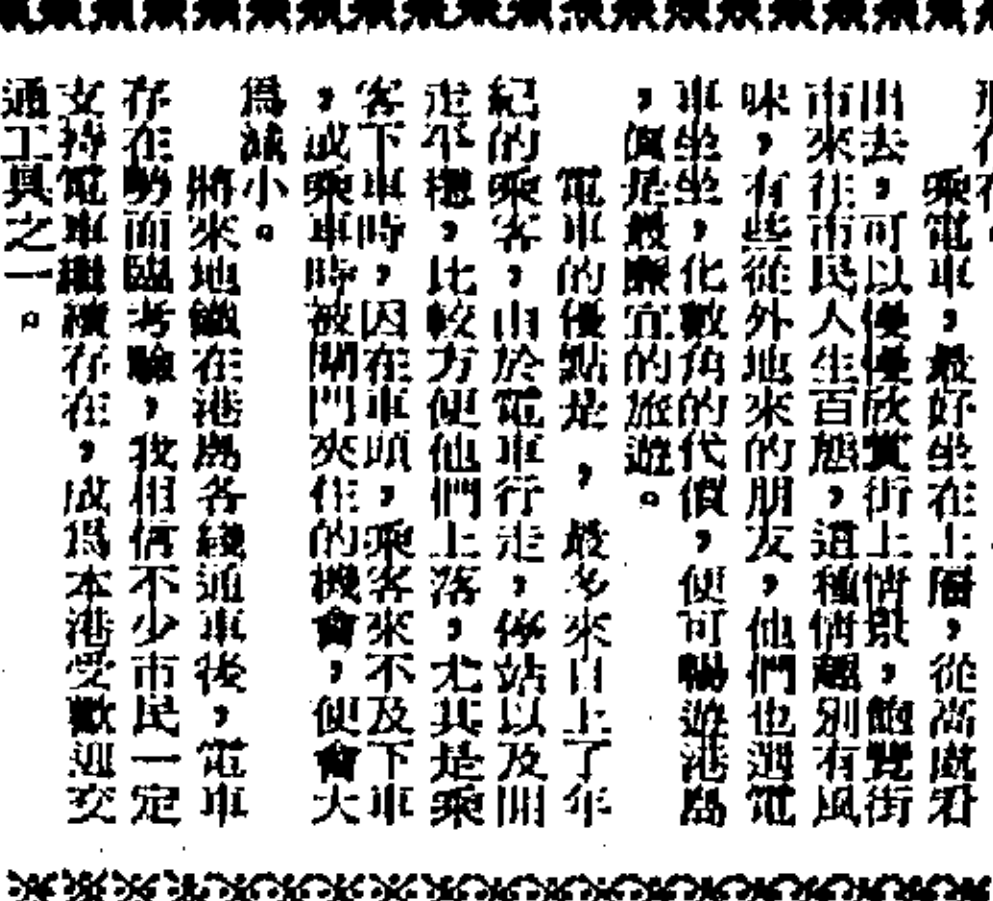 乘電車，最好坐在上層，從高處看
出去，可以慢慢欣賞街上情景，飽覽街
市來往市民人生百態，這種情趣別有風
味，有些從外地來的朋友，他們也遇電
車坐坐，化數角的代價，便可暢遊港島
，價是最廉宜的旅遊。
電車的優點是，最多來自上了年
紀的乘客，由於電車行走，停站以及開
走平穩，比較方便他們上落，尤其是乘
客下車時，因在車頭，乘客來不及下車
，或乘車時被閘門夾住的機會，便會大
爲減小。
將來地鐵在港島各綫通車後，電車
存在勢面臨考驗，我相信不少市民一定
支持電車繼續存在，成爲本港受歡迎交
通工具之一。